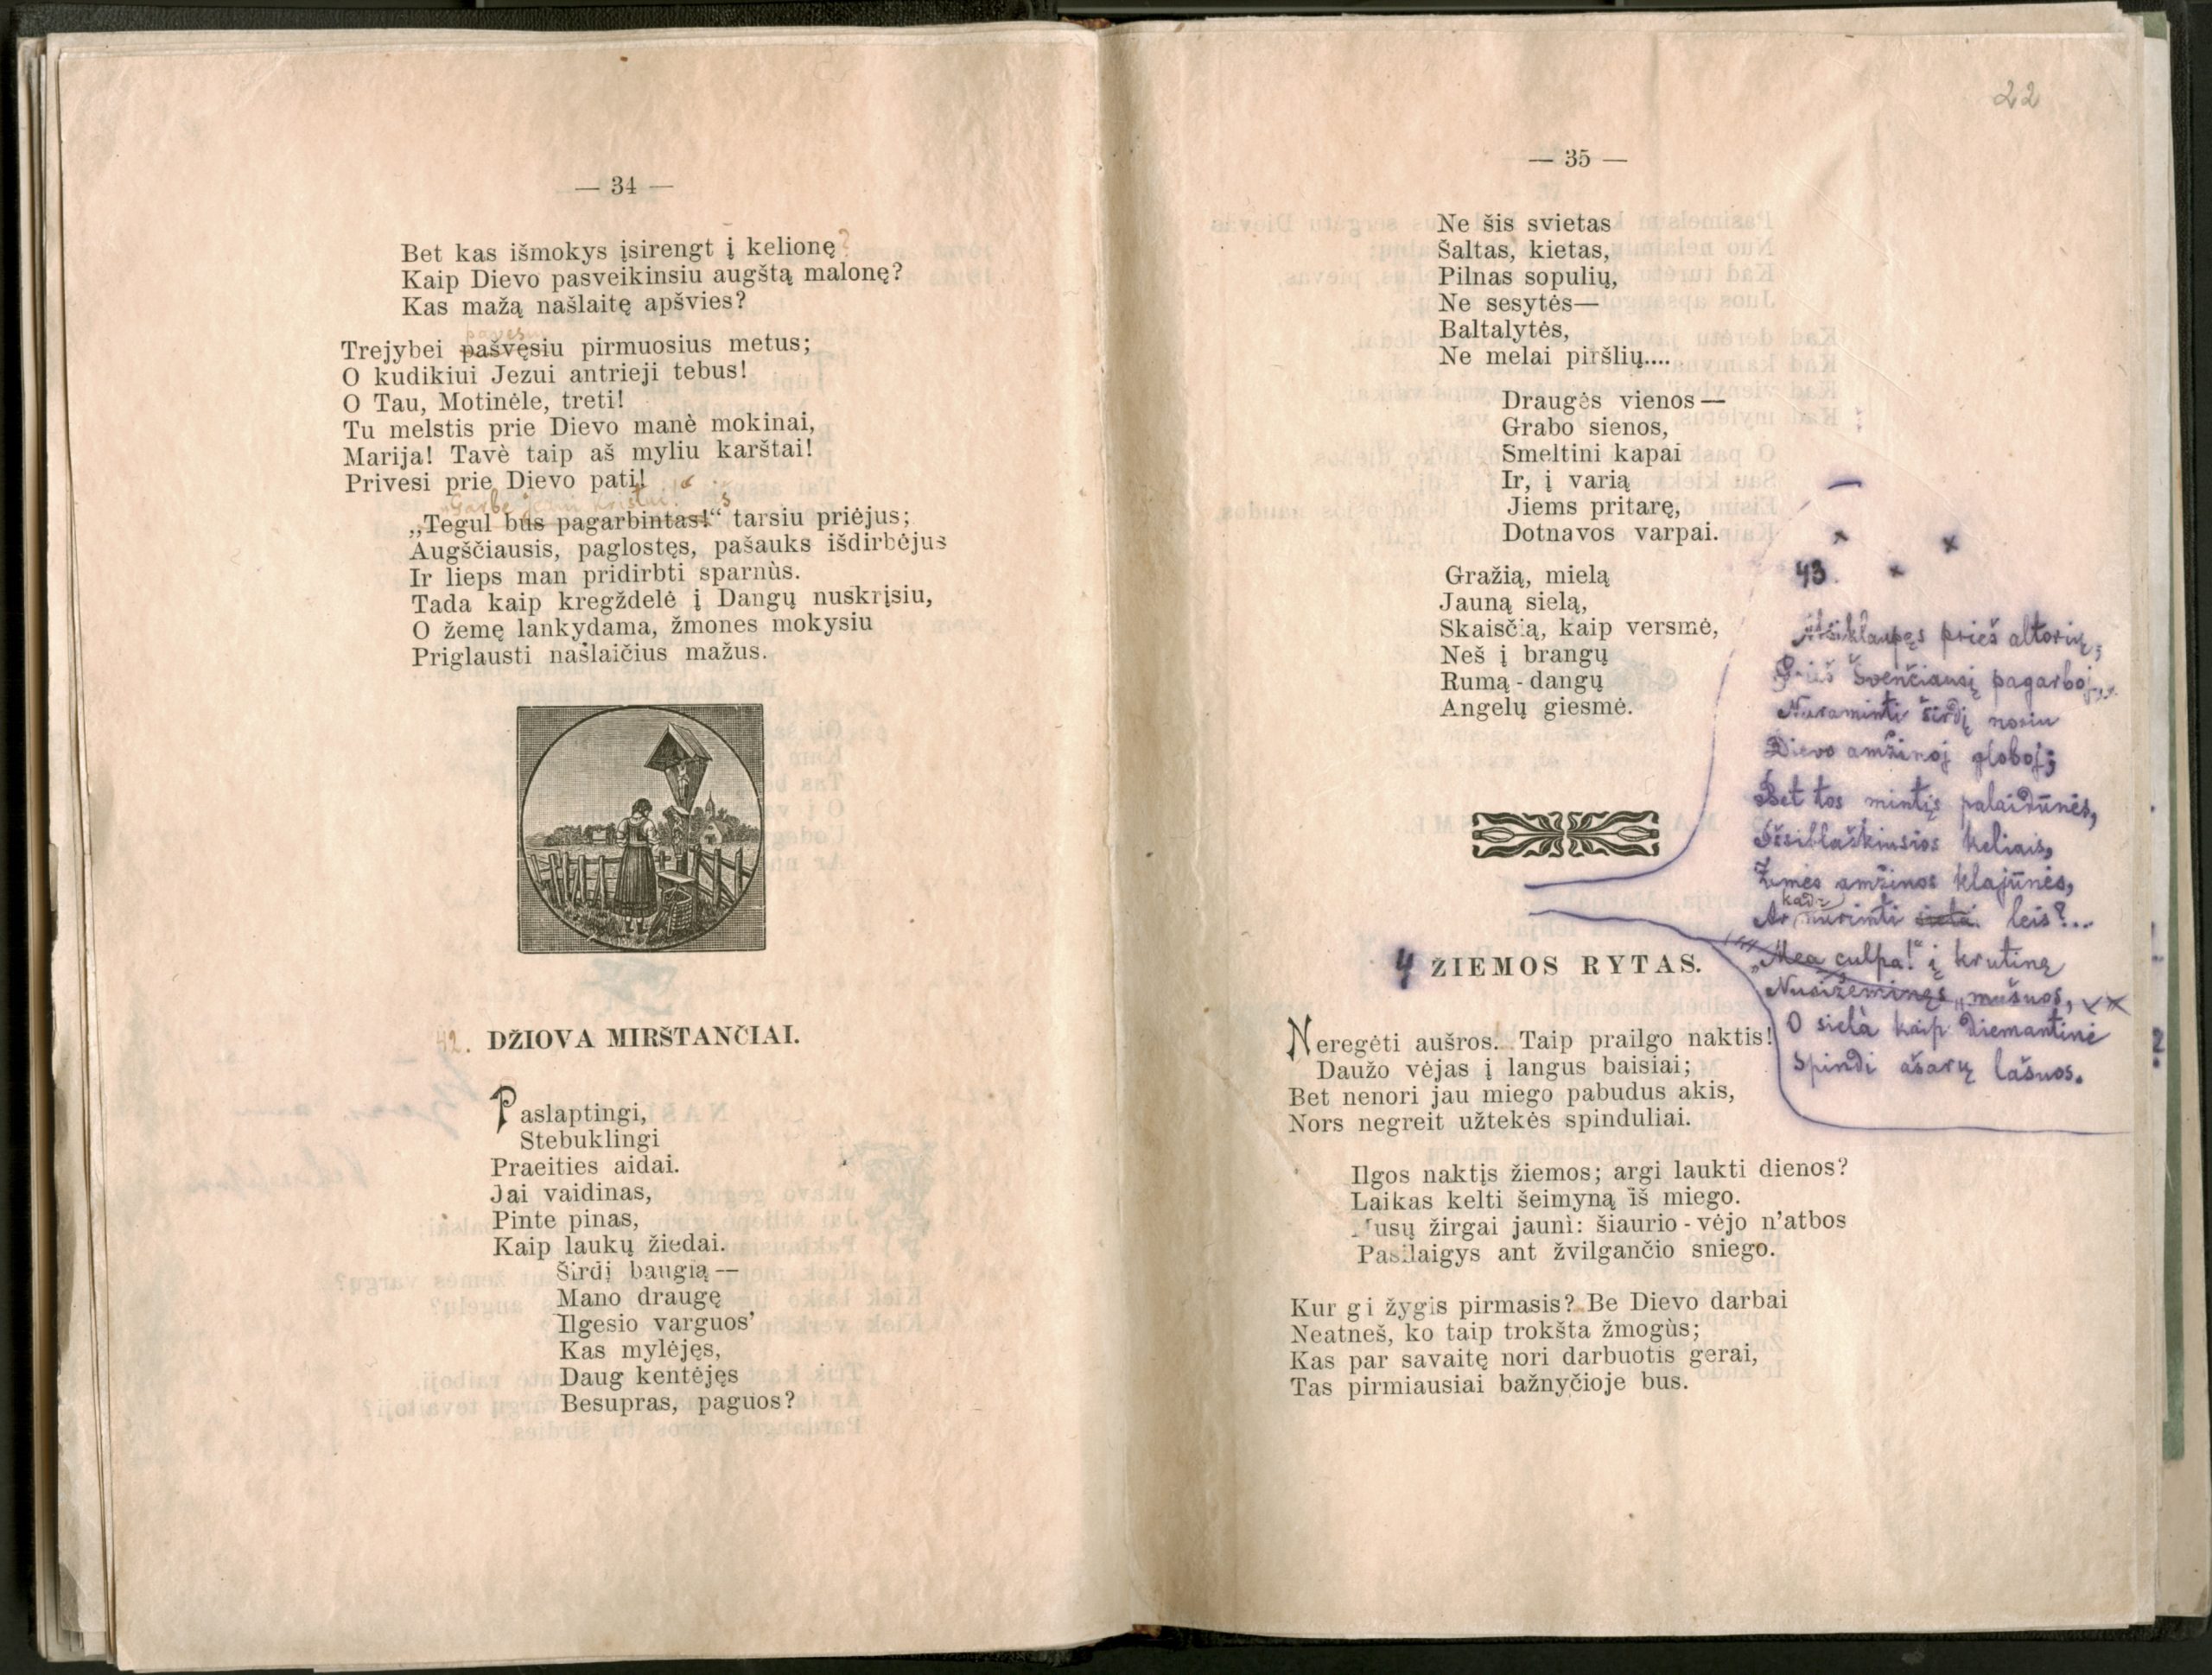 — 34 —
Bet kas išmokys įsirengt į kelionę?
Kaip Dievo pasveikinsiu augštą malonę?
Kas mažą našlaitę apšvies?
Trejybei pašvęsiu pirmuosius metus;
O kudikiui Jezui antrieji tebus!
O Tau, Motinėle, treti!
Tu melstis prie Dievo manè mokinai,
Marija! Tavè taip aš myliu karštai!
Privesi prie Dievo pati!
Garbė Kristui!
„Tegul bus pagarbintas!“ tarsiu priėjus;
Augščiausis, paglostęs, pašauks išdirbėjus
Ir lieps man pridirbti sparnùs.
Tada kaip kregždelė į Dangų nuskrįsiu,
O žemę lankydama, žmones mokysiu
Priglausti našlaičius mažus.
42. DŽIOVA MIRŠTANČIAI.
Paslaptingi,
Stebuklingi
Praeities aidai.
Jai vaidinas,
Pinte pinas,
Kaip laukų žiedai.
Širdį baugią —
Mano draugę
Ilgesio varguos’
Kas mylėjęs,
Daug kentėjęs
Besupras, paguos?
22
— 35 —
Ne šis svietas
Šaltas, kietas,
Pilnas sopulių,
Ne sesytės—
Baltalytės,
Ne melai piršlių....
Draugės vienos —
Grabo sienos,
Smeltini kapai
Ir, į varią
Jiems pritarę,
Dotnavos varpai.
Gražią, mielą
Jauną sielą,
Skaisčią, kaip versmė,
Neš į brangų
Rumą - dangų
Angelų giesmė.
43.
Atsiklaupęs prieš altorių,
Prieš Švenčiausį pagarboj,
Nuraminti širdį noriu
Dievo amžinoj globoj;
Bet tos mintįs palaidūnės,
Išsiblaškiusios keliais,
Žemės amžinos klajūnės,
kada
Ar nurimti siela leis?...
„Mea culpa!“ į krutinę
Nusižeminęs mušuos,
O siela kaip diemantinė
Spindi ašarų lašuos.
4 ŽIEMOS RYTAS.
Neregėti aušros... Taip prailgo naktis!
Daužo vėjas į langus baisiai;
Bet nenori jau miego pabudus akis,
Nors negreit užtekės spinduliai.
Ilgos naktįs žiemos; argi laukti dienos?
Laikas kelti šeimyną iš miego.
Musų žirgai jauni: šiaurio - vėjo n’atbos
Pasilaigys ant žvilgančio sniego.
Kur gi žygis pirmasis? Be Dievo darbai
Neatneš, ko taip trokšta žmogùs;
Kas par savaitę nori darbuotis gerai,
Tas pirmiausiai bažnyčioje bus.